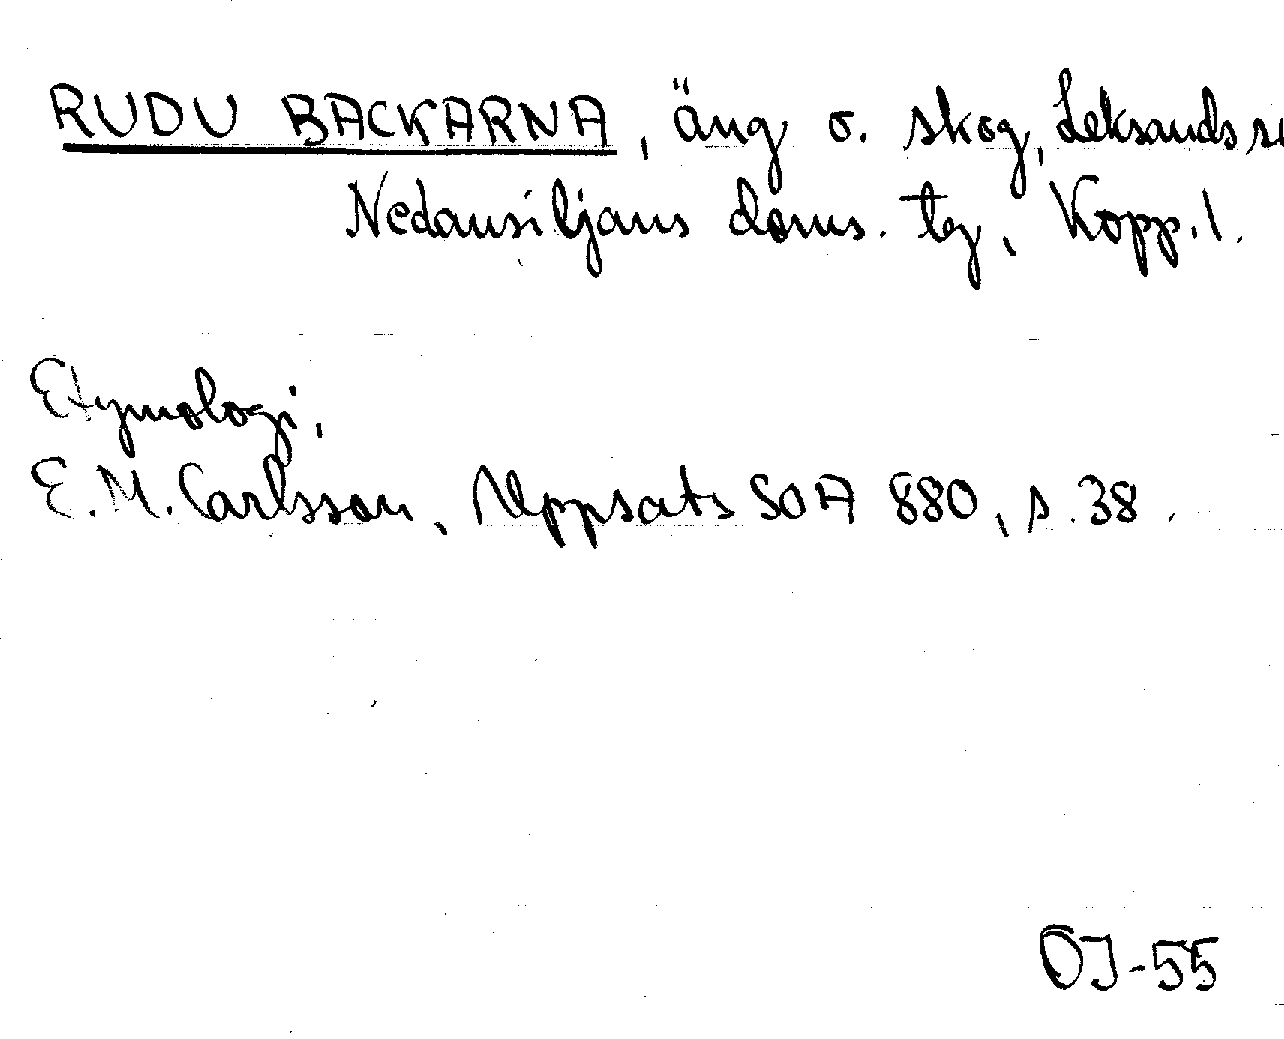 RUDU BACKARNA, äng o. skog, Leksands sn
Nedansiljans doms. tg, Kopp. l.
Etymologi,
E.M. Carlsson, Uppsats SOA 880, s. 38.
OJ-55